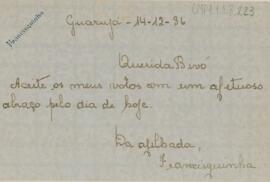 Francisquinha
Guarujá - 14-12-36
Querida Bivó
Aceite os meus votos com um afetuoso
abraço pelo dia de hoje.
Da afilhada,
Francisquinha